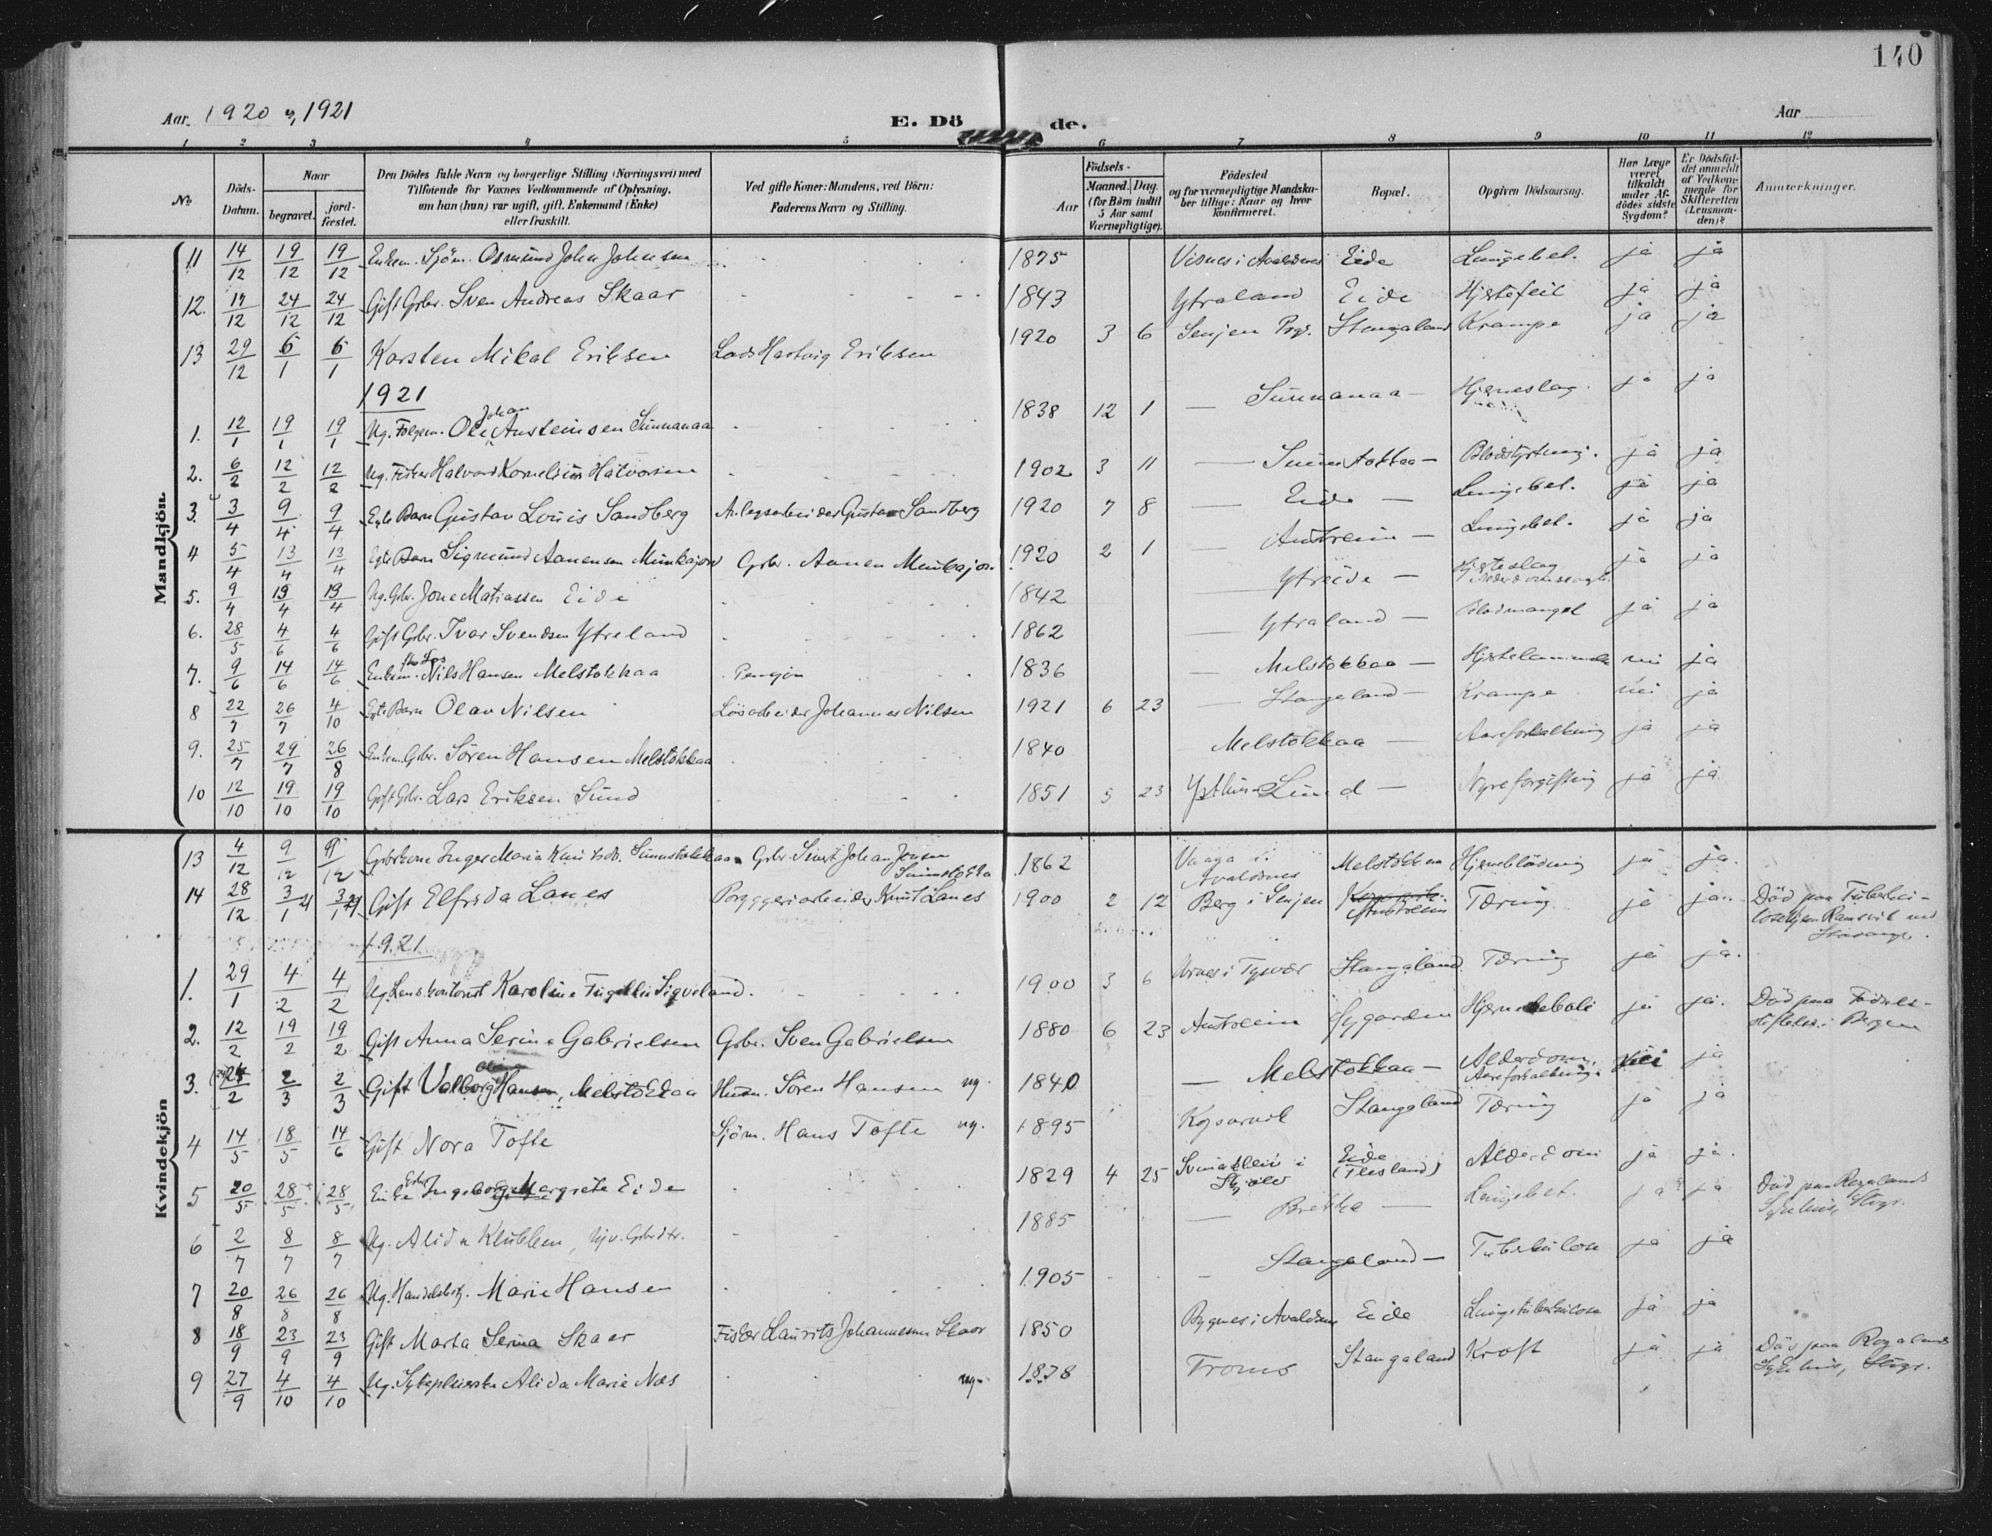 140
Aar 1920 og 1921
E. Dö de.
Aar
1 2 3 4 5 6 7 8 9 10 11 12
No.
Döds-Datum.
Naar
begravet.
jord-fæstet.
Den Dödes fulde Navn og borgerlige Stilling (Næringsvei) med
Tilføiende for Voxnes Vedkommende af Oplysning,
om han (hun) var ugift, gift, Enkemand (Enke)
eller fraskilt.
Ved gifte Koner: Mandens, ved Börn:
Faderens Navn og Stilling.
Födsels-
Aar
Maaned. Dag.
(for Börn indtil
5 Aar samt
Værnepligtige).
Födested
og for værnepligtige Mandska-
ber tillige: Naar og hvor
konfirmeret.
Bopæl.
Opgiven Dödsaarsag.
Har Læge
været
tilkaldt
under Af-
dödes sidste
Sygdom?
Er Dödsfal-
det anmeldt
af Vedkom-
mende for
Skifteretten
(Lensman-
den)?
Anmærkninger.
Mandkjön.
11 14/12 19/12 19/12 Enkem. Sjöm. Osmund John Johnsen 1875 Visnes i Avaldsnes Eide Lungebet. ja ja
12. 24/12 24/12 Gift Gbr. Sven Andreas Skaar 1843 Ytraland Eide Hjertefeil ja ja
13 29/12 6/1 6/1 Karsten Mikal Eriksen Lods Hartvig Eriksen 1920 3 6 Senjen Stangaland Krampe ja ja
1921
1. 12/1 19/1 19/1 Ug. Ole Johan Austeinsen Sunnanaa 1838 12 1 — Sunnanaa — Hjerneslag. ja ja
2. 6/2 12/2 12/2 Ug. Fisker Halvard Kornelius Halvorsen 1902 3 11 — — Blodstyrtning. ja ja
3. 3/4 9/4 9/4 Egte Barn Gustav Louis Sandberg Gustav Sandberg 1920 7 8 — Eide — Lungebet. ja ja
4 5/4 13/4 13/4 Egte Barn Sigmund Aanensen Munkajord Gbr. Aanen Munkajord 1920 2 1 — Austreim — Lungebet. ja ja
5. 9/4 19/4 19/4 Ug. Gbr. Jone Matiassen Eide 1842 — Ytreide — Hjerteslag ja ja
6. 28/5 4/6 4/6 Gift Gbr. Ivar Svendsen Ytreland 1862 — Ytraland — Blodmangel ja ja
7. 9/6 14/6 14/6 Enkem. Nils Hansen Melstokkaa 1836 — Melstokkaa — Hjertelammelse nei ja
8 22/7 26/7 4/10 Egte Barn Olav Nilsen Lösarbeider Johannes Nilsen 1921 6 23 — Stangeland — Krampe nei ja
9. 25/7 29/7 26/8 Enkem. Gbr. Sören Hansen Melstokkaa 1840 Melstokkaa — Aareforkalkning ja ja
10 12/10 19/10 19/10 Gift Gbr. Lars Eriksen Sund 1851 5 23 Sund — Nyreforgiftning ja ja
Kvindekjön
13 4/12 9/12 9/12 Gbrkone Inger Maria Knutsdt. Sunnstokkaa Gbr. Sivert Johan Jönsen 1862 Vaaga i Avaldsnes Melstokkaa Hjerneblödning ja ja.
14 28/12 3/1 21 3/1 21 Gift Elfrida Lanes Byggeriarbeider Knut Lanes 1900 2 12 Berg i Senjen Austreim Tæring ja ja. Död paa Tuberku-
losehjem Ramsvik ved
Stavanger.
1921.
1. 29/1 4/2 4/2 Ug. Lenskontorist Karoline Sigveland. 1900 3 6 i Tysvær Stangaland Tæring ja ja.
2. 12/2 19/2 19/2 Gift Anna Serine Gabrielsen Gbr. Sven Gabrielsen 1880 6 23 Austreim Sygarden ja ja. Död paa
i Bergen
3. 2/3 2/3 Gift Valborg Hansen, Melstokkaa Husm. Sören Hansen ug. 1840 — Melstokkaa — Alderdom. Aareforkalkning. nei ja
4 14/5 18/5 14/6 Gift Nora Tofte Sjöm. Hans Tofte ug. 1895 Kopervik Stangaland Tæring ja ja
5 20/5 28/5 28/5 Enke Ingeborg Margrete Eide 1829 4 25 i Skjold Eide Alderdom ja ja.
6 2/7 8/7 8/7 Ug. Alida Klubben, 1885 — Brekke — Lungebet. ja ja Död paa Rogalands
Sykehus, Stvgr.
7 20/8 26/8 26/8 Ug. Marie Hansen 1905 Stangaland — Tuberkulose ja ja
8 18/9 23/9 23/9 Gift Marta Serina Skaar Fisker Laurits Johannesen Skaar 1850 Bygnes i Avaldsn. Eide Lungetuberkulose ja ja
9 27/9 4/10 4/10 Ug. Sykepleierske Alida Marie Næs ug. 1878 Troms Stangaland Kræft ja ja Död paa Rogalands
Sykehus, Stvgr.